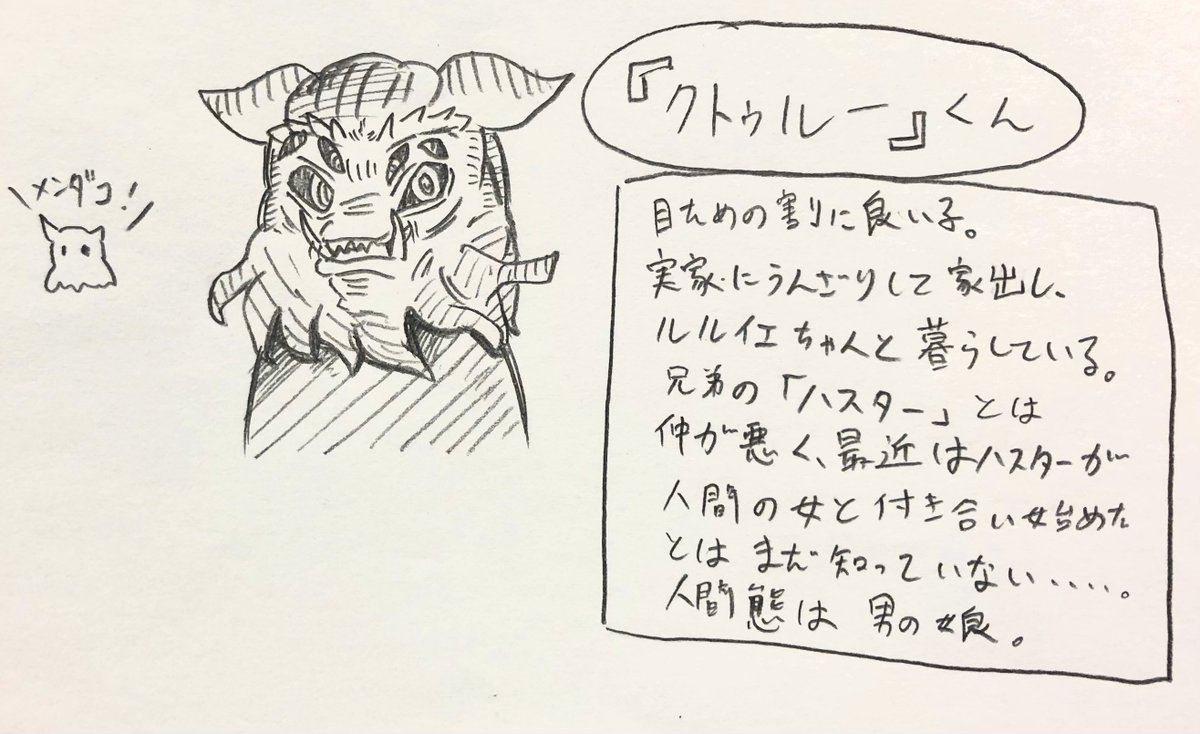 メンダコ!
『クトゥルー』くん
目ための割りに良い子。
実家にうんざりして家出し、
ルルイエちゃんと暮らしている。
兄弟の「ハスター」とは
仲が悪く、最近はハスターが
人間の女と付き合い始めた
とはまだ知っていない・・・・。
人間態は男の娘。